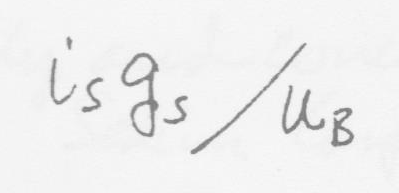 i_s g_s / u_B